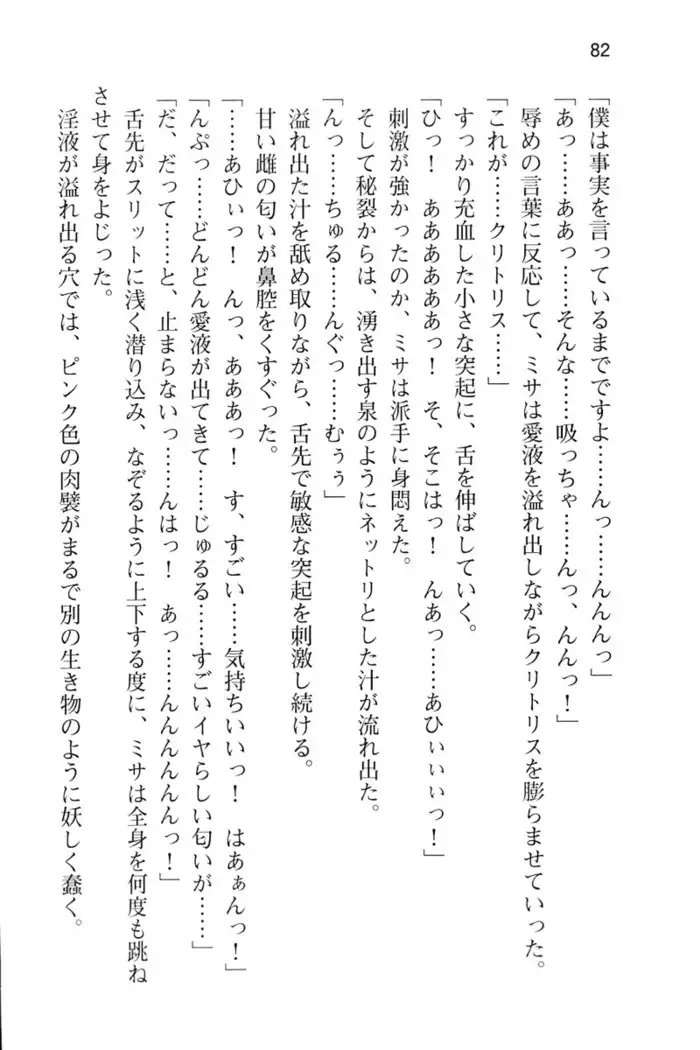 82
「僕は事実を言っているまでですよ……んっ……んんんっ」
「あっ……ああっ……そんな……吸っちゃ……んっ、んんっ！」
辱めの言葉に反応して、ミサは愛液を溢れ出しながらクリトリスを膨らませていった。
「これが……クリトリス……」
すっかり充血した小さな突起に、舌を伸ばしていく。
「ひっ！　ああああああっ！　そ、そこはっ！　んあっ……あひぃぃぃっ！」
刺激が強かったのか、ミサは派手に身悶えた。
そして秘裂からは、湧き出す泉のようにネットリとした汁が流れ出た。
「んっ……ちゅる……んぐっ……むぅぅ」
溢れ出た汁を舐め取りながら、舌先で敏感な突起を刺激し続ける。
甘い雌の匂いが鼻腔をくすぐった。
「……あひぃっ！　んっ、あああっ！　す、すごい……気持ちいいっ！　はあぁんっ！」
「んぷっ……どんどん愛液が出てきて……じゅるる……すごいイヤらしい匂いが……」
「だ、だって……と、止まらないっ……んはっ！　あっ……んんんんんっ！」
舌先がスリットに浅く潜り込み、なぞるように上下する度に、ミサは全身を何度も跳ね
させて身をよじった。
淫液が溢れ出る穴では、ピンク色の肉襞がまるで別の生き物のように妖しく蠢く。